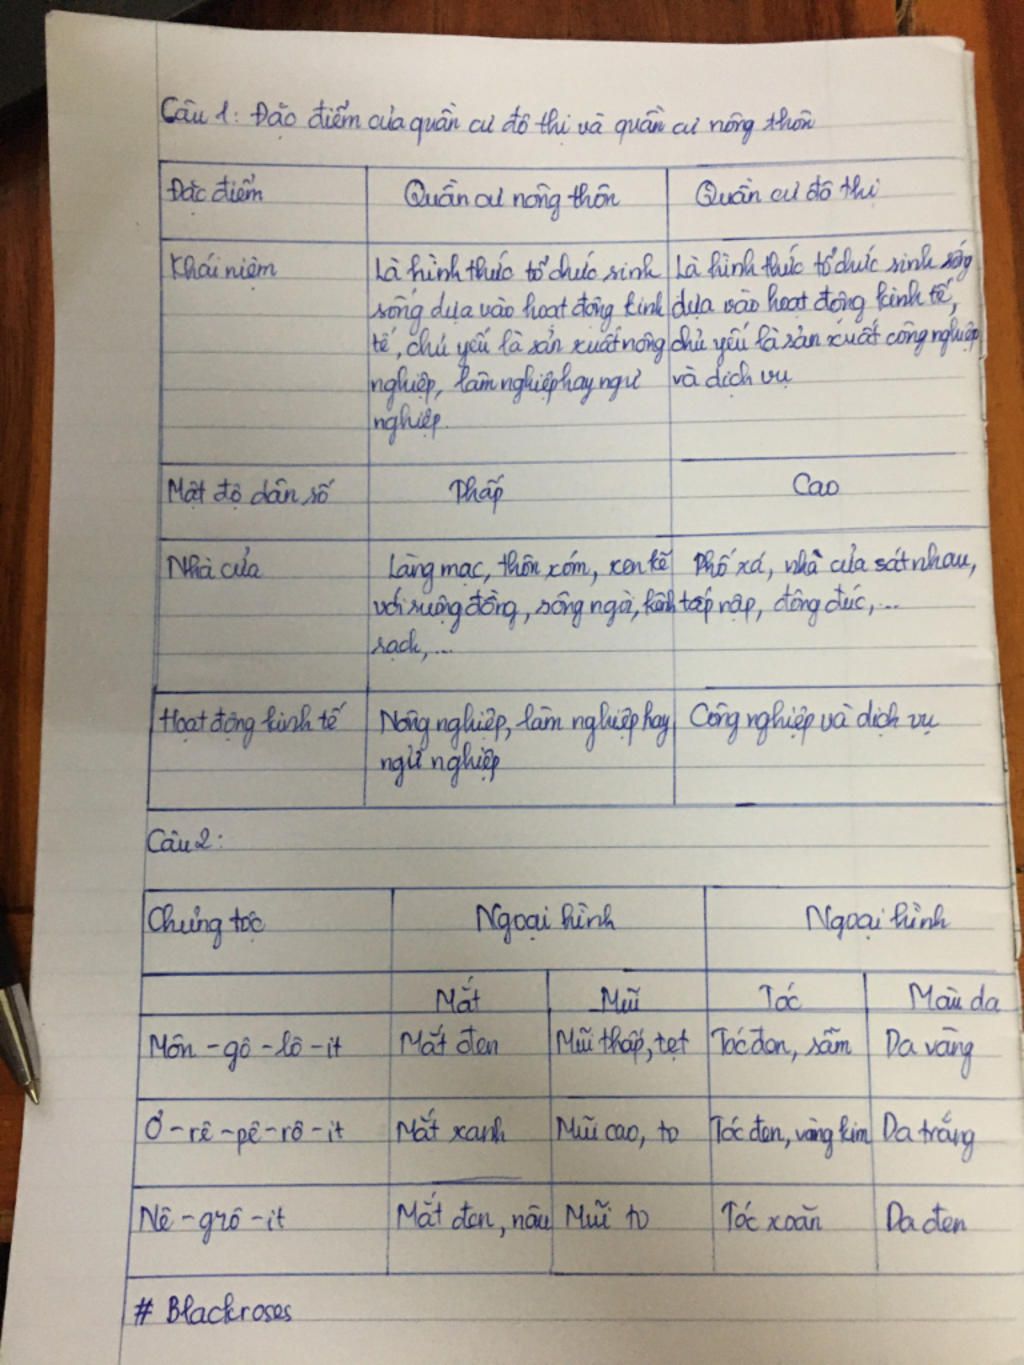 Câu 1: Đặc điểm của quần cư đô thị và quần cư nông thôn
Đặc điểm
Quần cư nông thôn
Quần cư đô thị
Khái niệm
Là hình thức tổ chức sinh
sống dựa vào hoạt động kinh
tế, chủ yếu là sản xuất nông
nghiệp, lâm nghiệp hay ngư
nghiệp.
Là hình thức tổ chức sinh sống
dựa vào hoạt động kinh tế,
chủ yếu là sản xuất công nghiệp
và dịch vụ
Mật độ dân số
Thấp
Cao
Nhà cửa
Làng mạc, thôn xóm, xen kẽ
với ruộng đồng, sông ngòi, kênh
rạch,...
Phố xá, nhà cửa sát nhau,
tấp nập, đông đúc,...
Hoạt động kinh tế
Nông nghiệp, lâm nghiệp hay
ngư nghiệp
Công nghiệp và dịch vụ
Câu 2:
Chủng tộc
Ngoại hình
Ngoại hình
Mắt
Mũi
Tóc
Màu da
Môn-gô-lô-it
Mắt đen
Mũi thấp, tẹt
Tóc đen, sẫm
Da vàng
Ơ-rê-pê-rô-it
Mắt xanh
Mũi cao, to
Tóc đen, vàng kim
Da trắng
Nê-grô-it
Mắt đen, nâu
Mũi to
Tóc xoăn
Da đen
# Blackroses